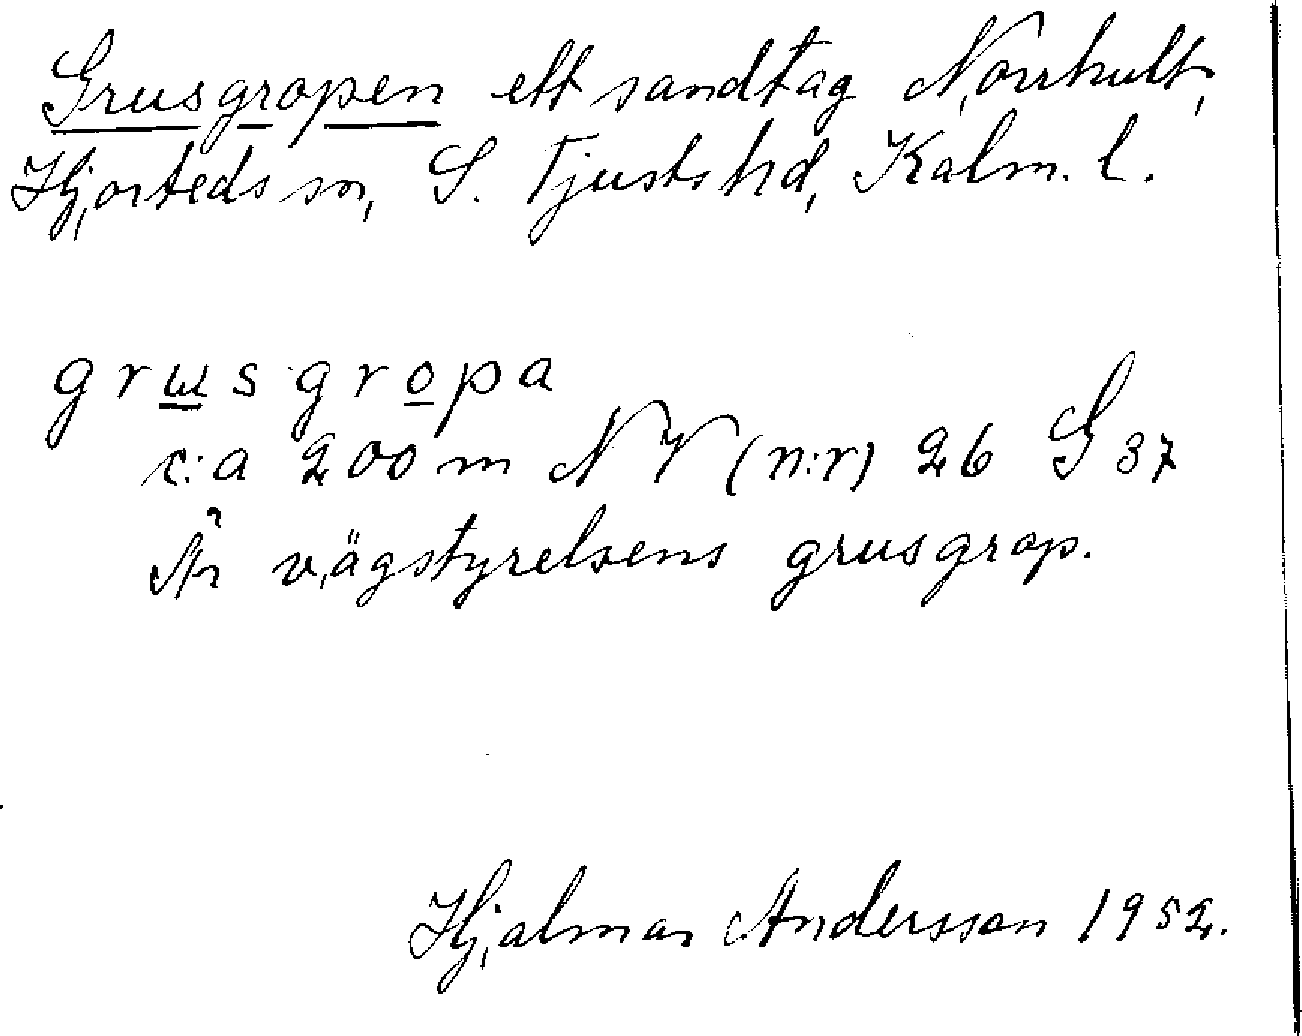 Grusgropen ett sandtag Norrhult,
Hjorteds sn, S. Tjusts hd, Kalm. l.
grusgropa
c:a 200 m NV (n:r) 26 G 37
Är vägstyrelsens grusgrop.
Hjalmar Andersson 1952.